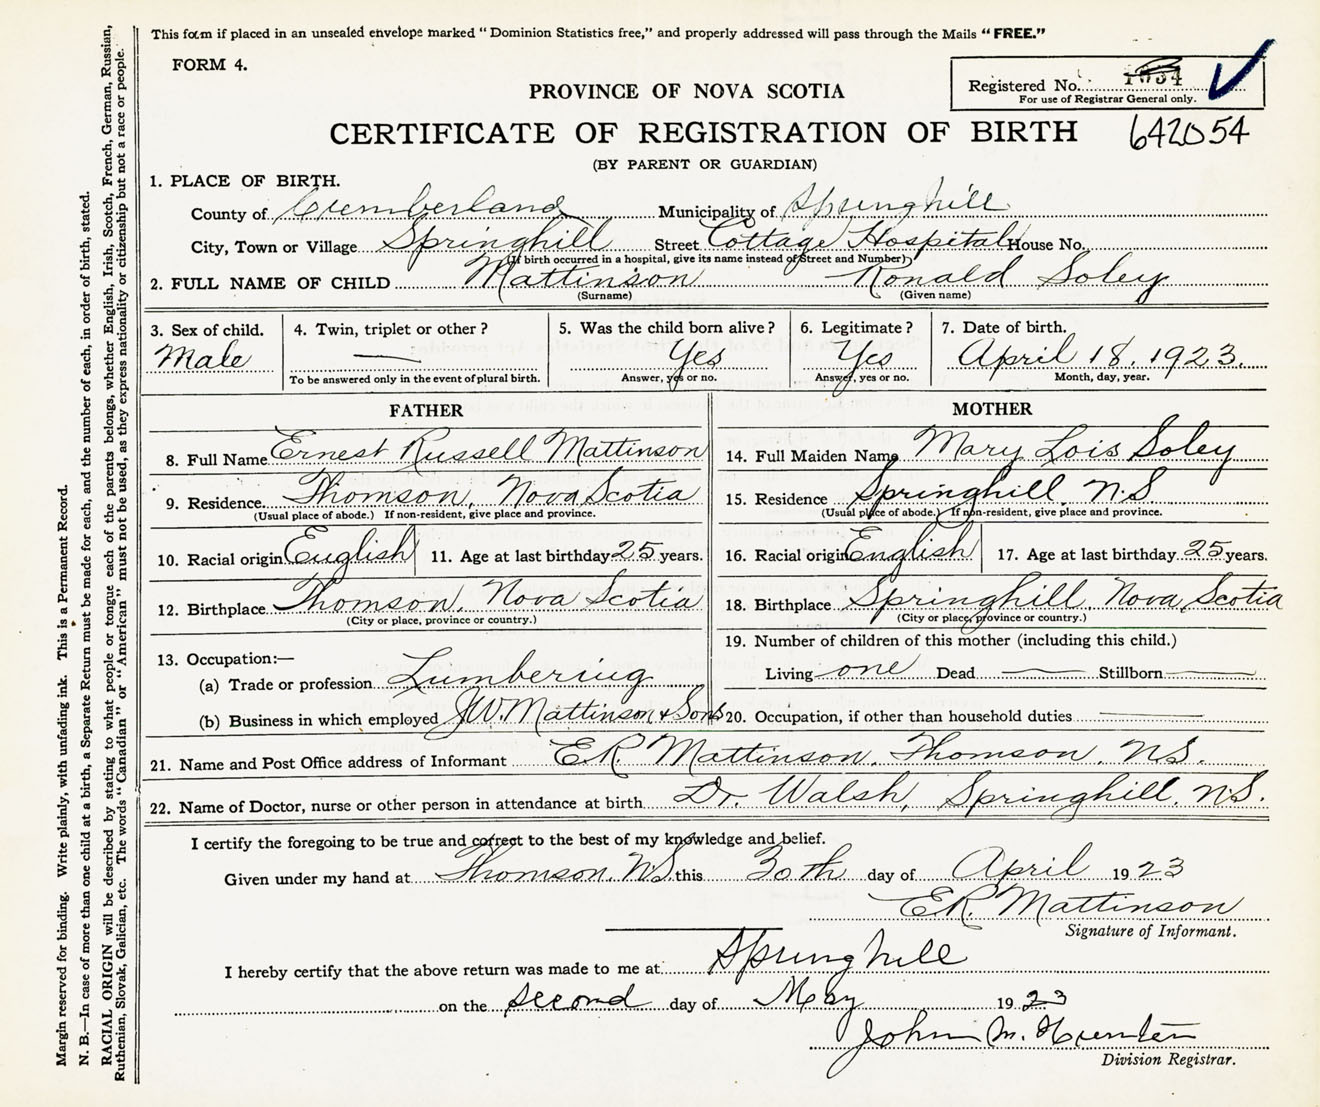 This form if placed in an unsealed envelope marked "Dominion Statistics free," and properly addressed will pass through the Mails "FREE."
FORM 4.
Registered No.
For use of Registrar General only.
PROVINCE OF NOVA SCOTIA
CERTIFICATE OF REGISTRATION OF BIRTH 642054
(BY PARENT OR GUARDIAN)
1. PLACE OF BIRTH.
County of Cumberland Municipality of Springhill
City, Town or Village Springhill Street Cottage Hospital House No.
(If birth occurred in a hospital, give its name instead of Street and Number)
2. FULL NAME OF CHILD Mattinson Ronald Soley
(Surname) (Given name)
3. Sex of child. 4. Twin, triplet or other? 5. Was the child born alive? 6. Legitimate? 7. Date of birth.
Male — Yes Yes April 18. 1923.
To be answered only in the event of plural birth. Answer, yes or no. Answer, yes or no. Month, day, year.
FATHER MOTHER
8. Full Name Ernest Russell Mattinson 14. Full Maiden Name Mary Lois Soley
9. Residence Thomson, Nova Scotia 15. Residence Springhill, N.S.
(Usual place of abode.) If non-resident, give place and province. (Usual place of abode.) If non-resident, give place and province.
10. Racial origin English 11. Age at last birthday 25 years. 16. Racial origin English 17. Age at last birthday 25 years.
12. Birthplace Thomson, Nova Scotia 18. Birthplace Springhill, Nova Scotia
(City or place, province or country.) (City or place, province or country.)
19. Number of children of this mother (including this child.)
13. Occupation:—
(a) Trade or profession Lumbering Living one Dead — Stillborn —
(b) Business in which employed J.W. Mattinson & Sons 20. Occupation, if other than household duties —
21. Name and Post Office address of Informant E.R. Mattinson, Thomson, N.S.
22. Name of Doctor, nurse or other person in attendance at birth Dr. Walsh, Springhill, N.S.
I certify the foregoing to be true and correct to the best of my knowledge and belief.
Given under my hand at Thomson, N.S. this 30th day of April 1923
E.R. Mattinson
Signature of Informant.
I hereby certify that the above return was made to me at Springhill
on the second day of May 1923
John M. Hunter
Division Registrar.
Margin reserved for binding. Write plainly, with unfading ink. This is a Permanent Record.
N. B.—In case of more than one child at a birth, a Separate Return must be made for each, and the number of each, in order of birth, stated.
RACIAL ORIGIN will be described by stating to what people or tongue each of the parents belongs, whether English, Irish, Scotch, French, German, Russian,
Ruthenian, Slovak, Galician, etc. The words "Canadian" or "American" must not be used, as they express nationality or citizenship but not a race or people.